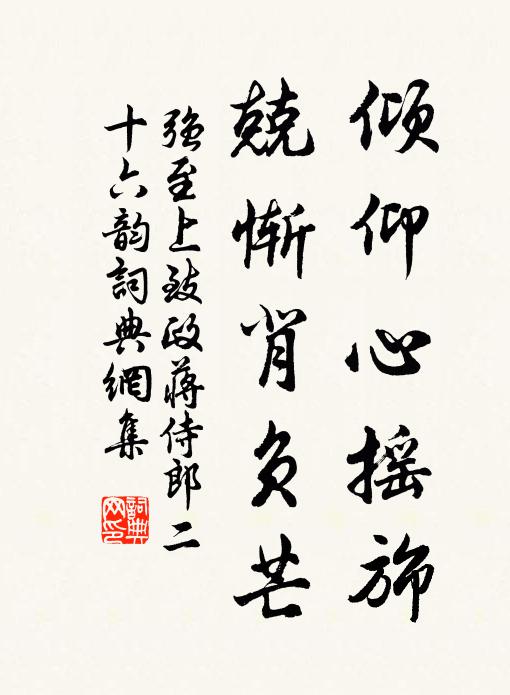 倾仰心摇旆
兢惭背负芒
强至上致政蒋侍郎二
十六韵詞典網集
詞典
网印